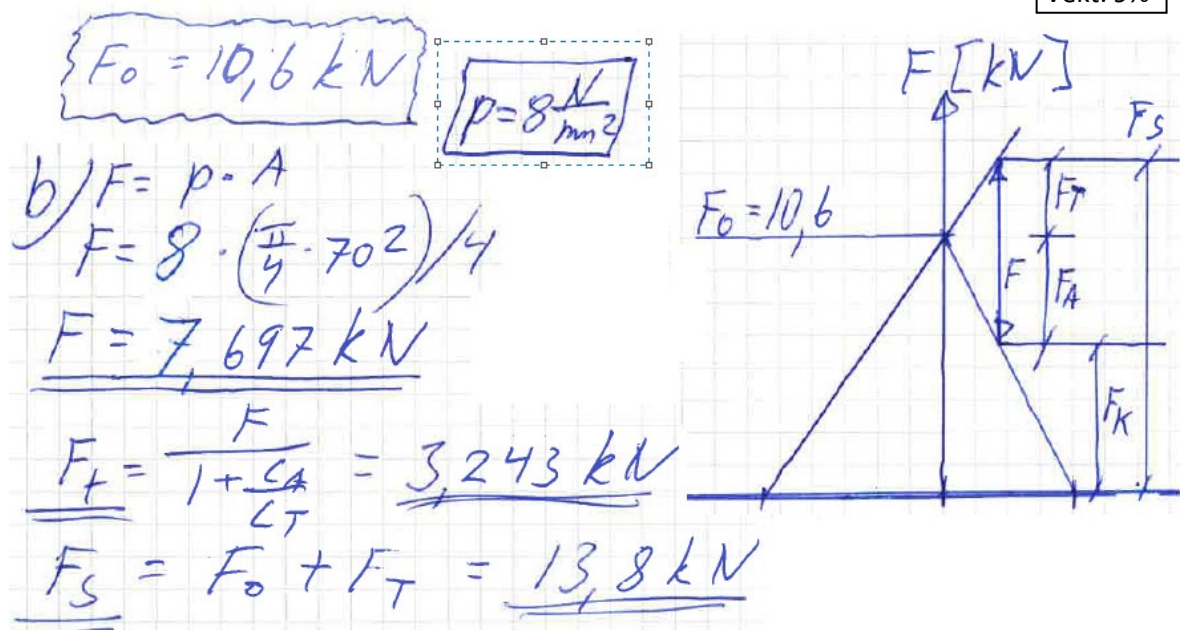 Vekt: 5%
F₀ = 10,6 kN
p = 8 N/mm²
b) F = p · A
F = 8 · (π/4 · 70²)/4
F = 7,697 kN
F_t = F / (1 + C_A/C_T) = 3,243 kN
F_S = F₀ + F_T = 13,8 kN
F [kN]
F_S
F₀ = 10,6
F_T
F
F_A
F_K